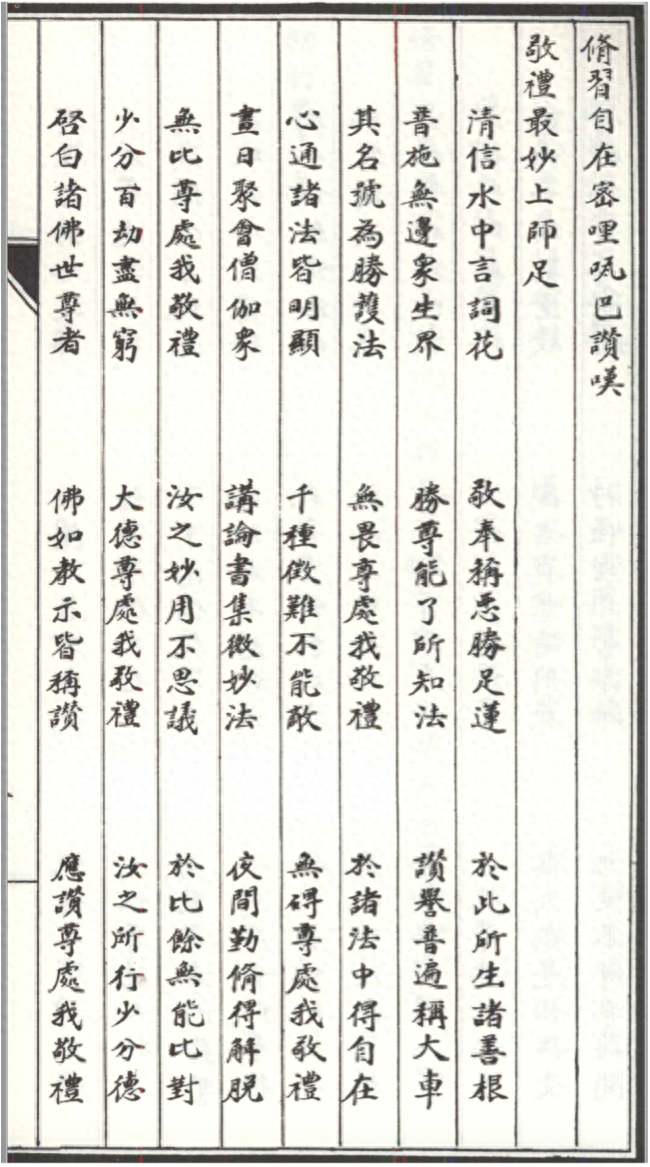 脩習自在密哩㖿巴讚嘆
敬禮最妙上師足
清信水中言詞花 敬奉稱悉勝足蓮 於此所生諸善根
普施無邊衆生界 勝尊能了所知法 讚譽普遍稱大車
其名號為勝護法 無畏尊處我敬禮 於諸法中得自在
心通諸法皆明顯 千種徵難不能敵 無碍尊處我敬禮
晝日聚會僧伽衆 講論書集微妙法 夜間勤脩得解脫
無比尊處我敬禮 汝之妙用不思議 於比餘無能比對
少分百劫盡無窮 大德尊處我敬禮 汝之所行少分德
啓白諸佛世尊者 佛如教示皆稱讚 應讚尊處我敬禮